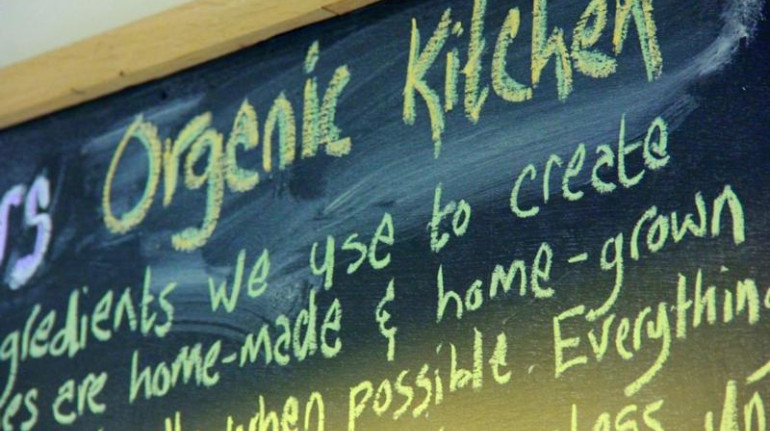 rs Organic Kitchen
gredients we use to create
es are home-made & home-grown
when possible. Everything